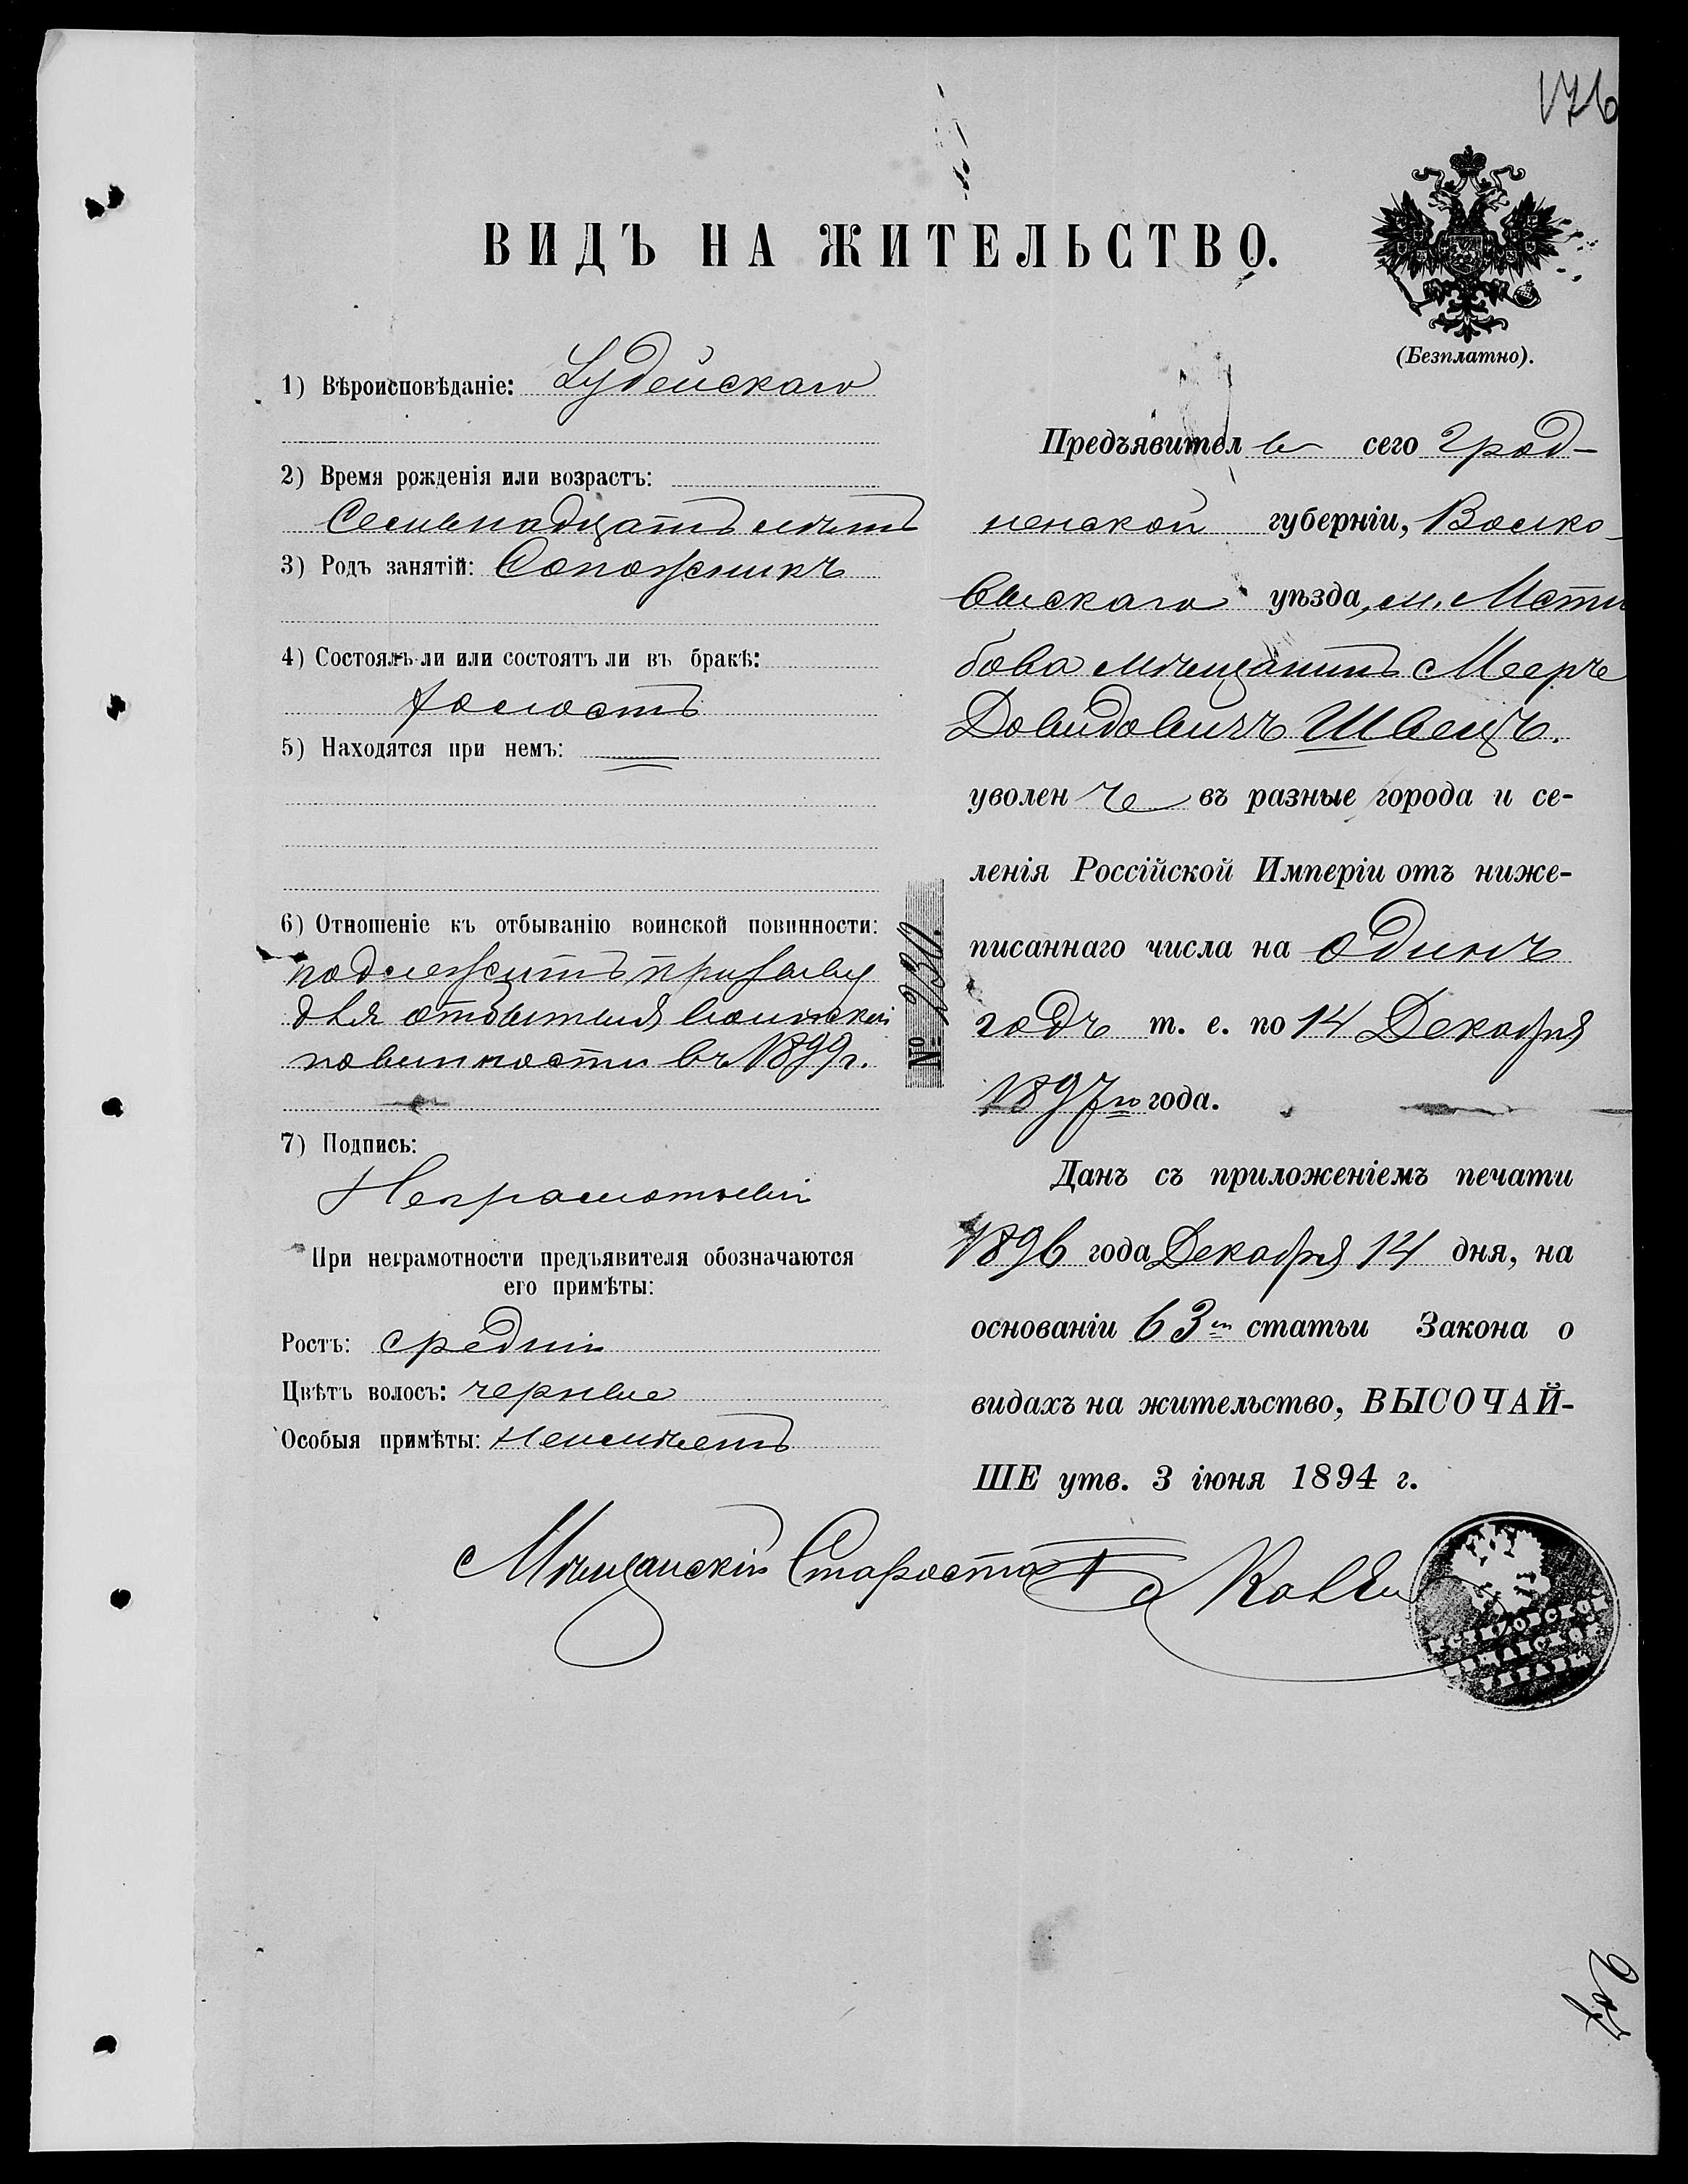 176
ВИДЪ НА ЖИТЕЛЬСТВО.
(Безплатно).
1) Вѣроисповѣданіе: Іудейскаго
2) Время рожденія или возрастъ:
Семьнадцать лѣтъ
3) Родъ занятій: Сапожникъ
4) Состоялъ-ли или состоятъ ли въ бракѣ:
холостъ
5) Находятся при немъ:
6) Отношеніе къ отбыванію воинской повинности:
подлежитъ призыву
для отбытия воинской
повинности въ 1899 г.
7) Подпись:
Неграмотный
При неграмотности предъявителя обозначаются
его примѣты:
Ростъ: средній
Цвѣтъ волосъ: черные
Особыя примѣты: Неимѣетъ
№ 230.
Предъявитель сего Грод-
ненской губерніи, Волко-
выскаго уѣзда, м. Мсти
бова мѣщанинъ Мееръ
Довидовичъ Швецъ.
уволенъ въ разные города и се-
ленія Россійской Имперіи отъ ниже-
писаннаго числа на одинъ
годъ т. е. по 14 Декабря
1897 го года.
Данъ съ приложеніемъ печати
1896 года Декабря 14 дня, на
основаніи 63 й статьи Закона о
видахъ на жительство, ВЫСОЧАЙ-
ШЕ утв. 3 іюня 1894 г.
Мѣщанскій Староста